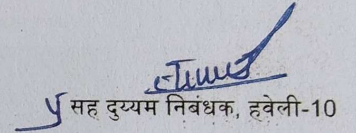 सह दुय्यम निबंधक, हवेली-10